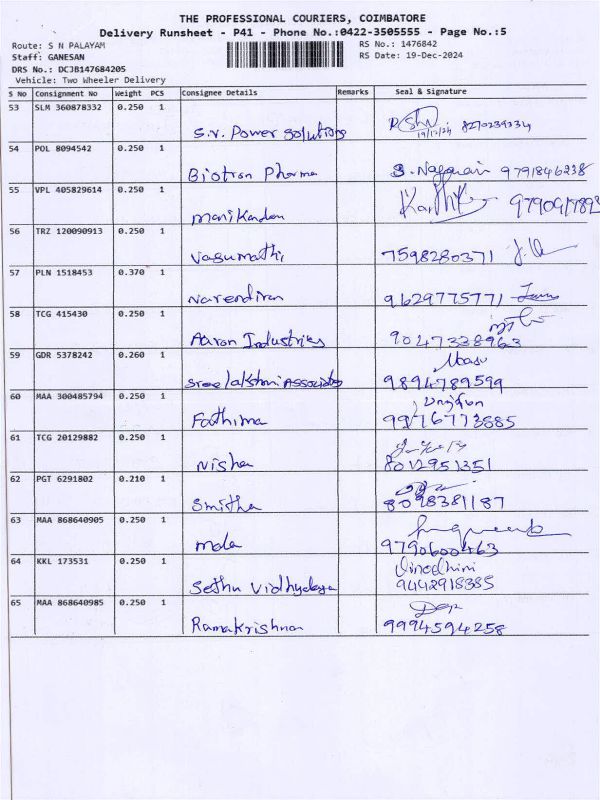 THE PROFESSIONAL COURIERS, COIMBATORE
Delivery Runsheet - P41 - Phone No.:0422-3505555 - Page No.:5
Route: S N PALAYAM RS No.: 1476842
Staff: GANESAN RS Date: 19-Dec-2024
DRS No.: DCJB147684205
Vehicle: Two Wheeler Delivery
S No Consignment No Weight PCS Consignee Details Remarks Seal & Signature
53 SLM 360878332 0.250 1
S.V. Power Solutions 19/12/24 8270239334
54 POL 8094542 0.250 1
Biotron Pharma S. Nagarani 9791846238
55 VPL 405829614 0.250 1
Manikandan Karthik
56 TRZ 120090913 0.250 1
Vasumathi 7598280371
57 PLN 1518453 0.370 1
Narendiran 9629775771
58 TCG 415430 0.250 1
Aaron Industries 9047338963
59 GDR 5378242 0.260 1
Sree lakshmi Associates 9894789599
60 MAA 300485794 0.250 1
Fathima 9976773885
61 TCG 20129882 0.250 1
Nisha 8012951351
62 PGT 6291802 0.210 1
Smitha 8098381187
63 MAA 868640905 0.250 1
mala 9790600463
64 KKL 173531 0.250 1
Vinodhini
Sethu Vidhyalaya 9442918385
65 MAA 868640985 0.250 1
Ramakrishnan 9994594258